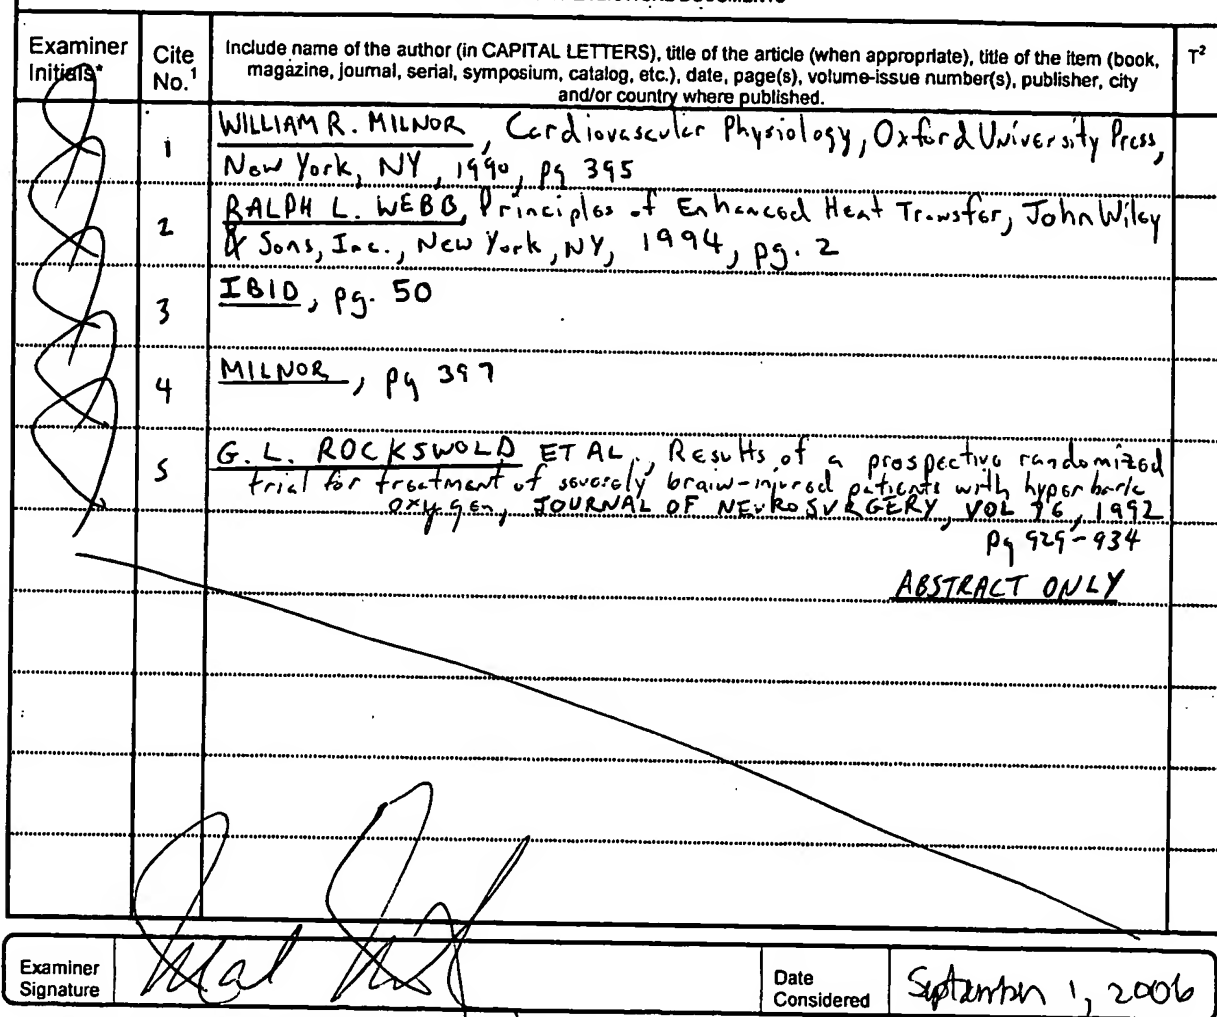 DOCUMENTS
Examiner Initials* Cite No.¹ Include name of the author (in CAPITAL LETTERS), title of the article (when appropriate), title of the item (book, T²
magazine, journal, serial, symposium, catalog, etc.), date, page(s), volume-issue number(s), publisher, city
and/or country where published.
1 WILLIAM R. MILNOR, Cardiovascular Physiology, Oxford University Press,
New York, NY, 1990, pg 395
2 RALPH L. WEBB, Principles of Enhanced Heat Transfer, John Wiley
& Sons, Inc., New York, NY, 1994, pg. 2
3 IBID, pg. 50
4 MILNOR, pg 397
5 G. L. ROCKSWOLD ET AL., Results of a prospective randomized
trial for treatment of severely brain-injured patients with hyperbaric
oxygen, JOURNAL OF NEUROSURGERY, VOL 76, 1992
pg 929-934
ABSTRACT ONLY
Examiner Signature
Date Considered September 1, 2006